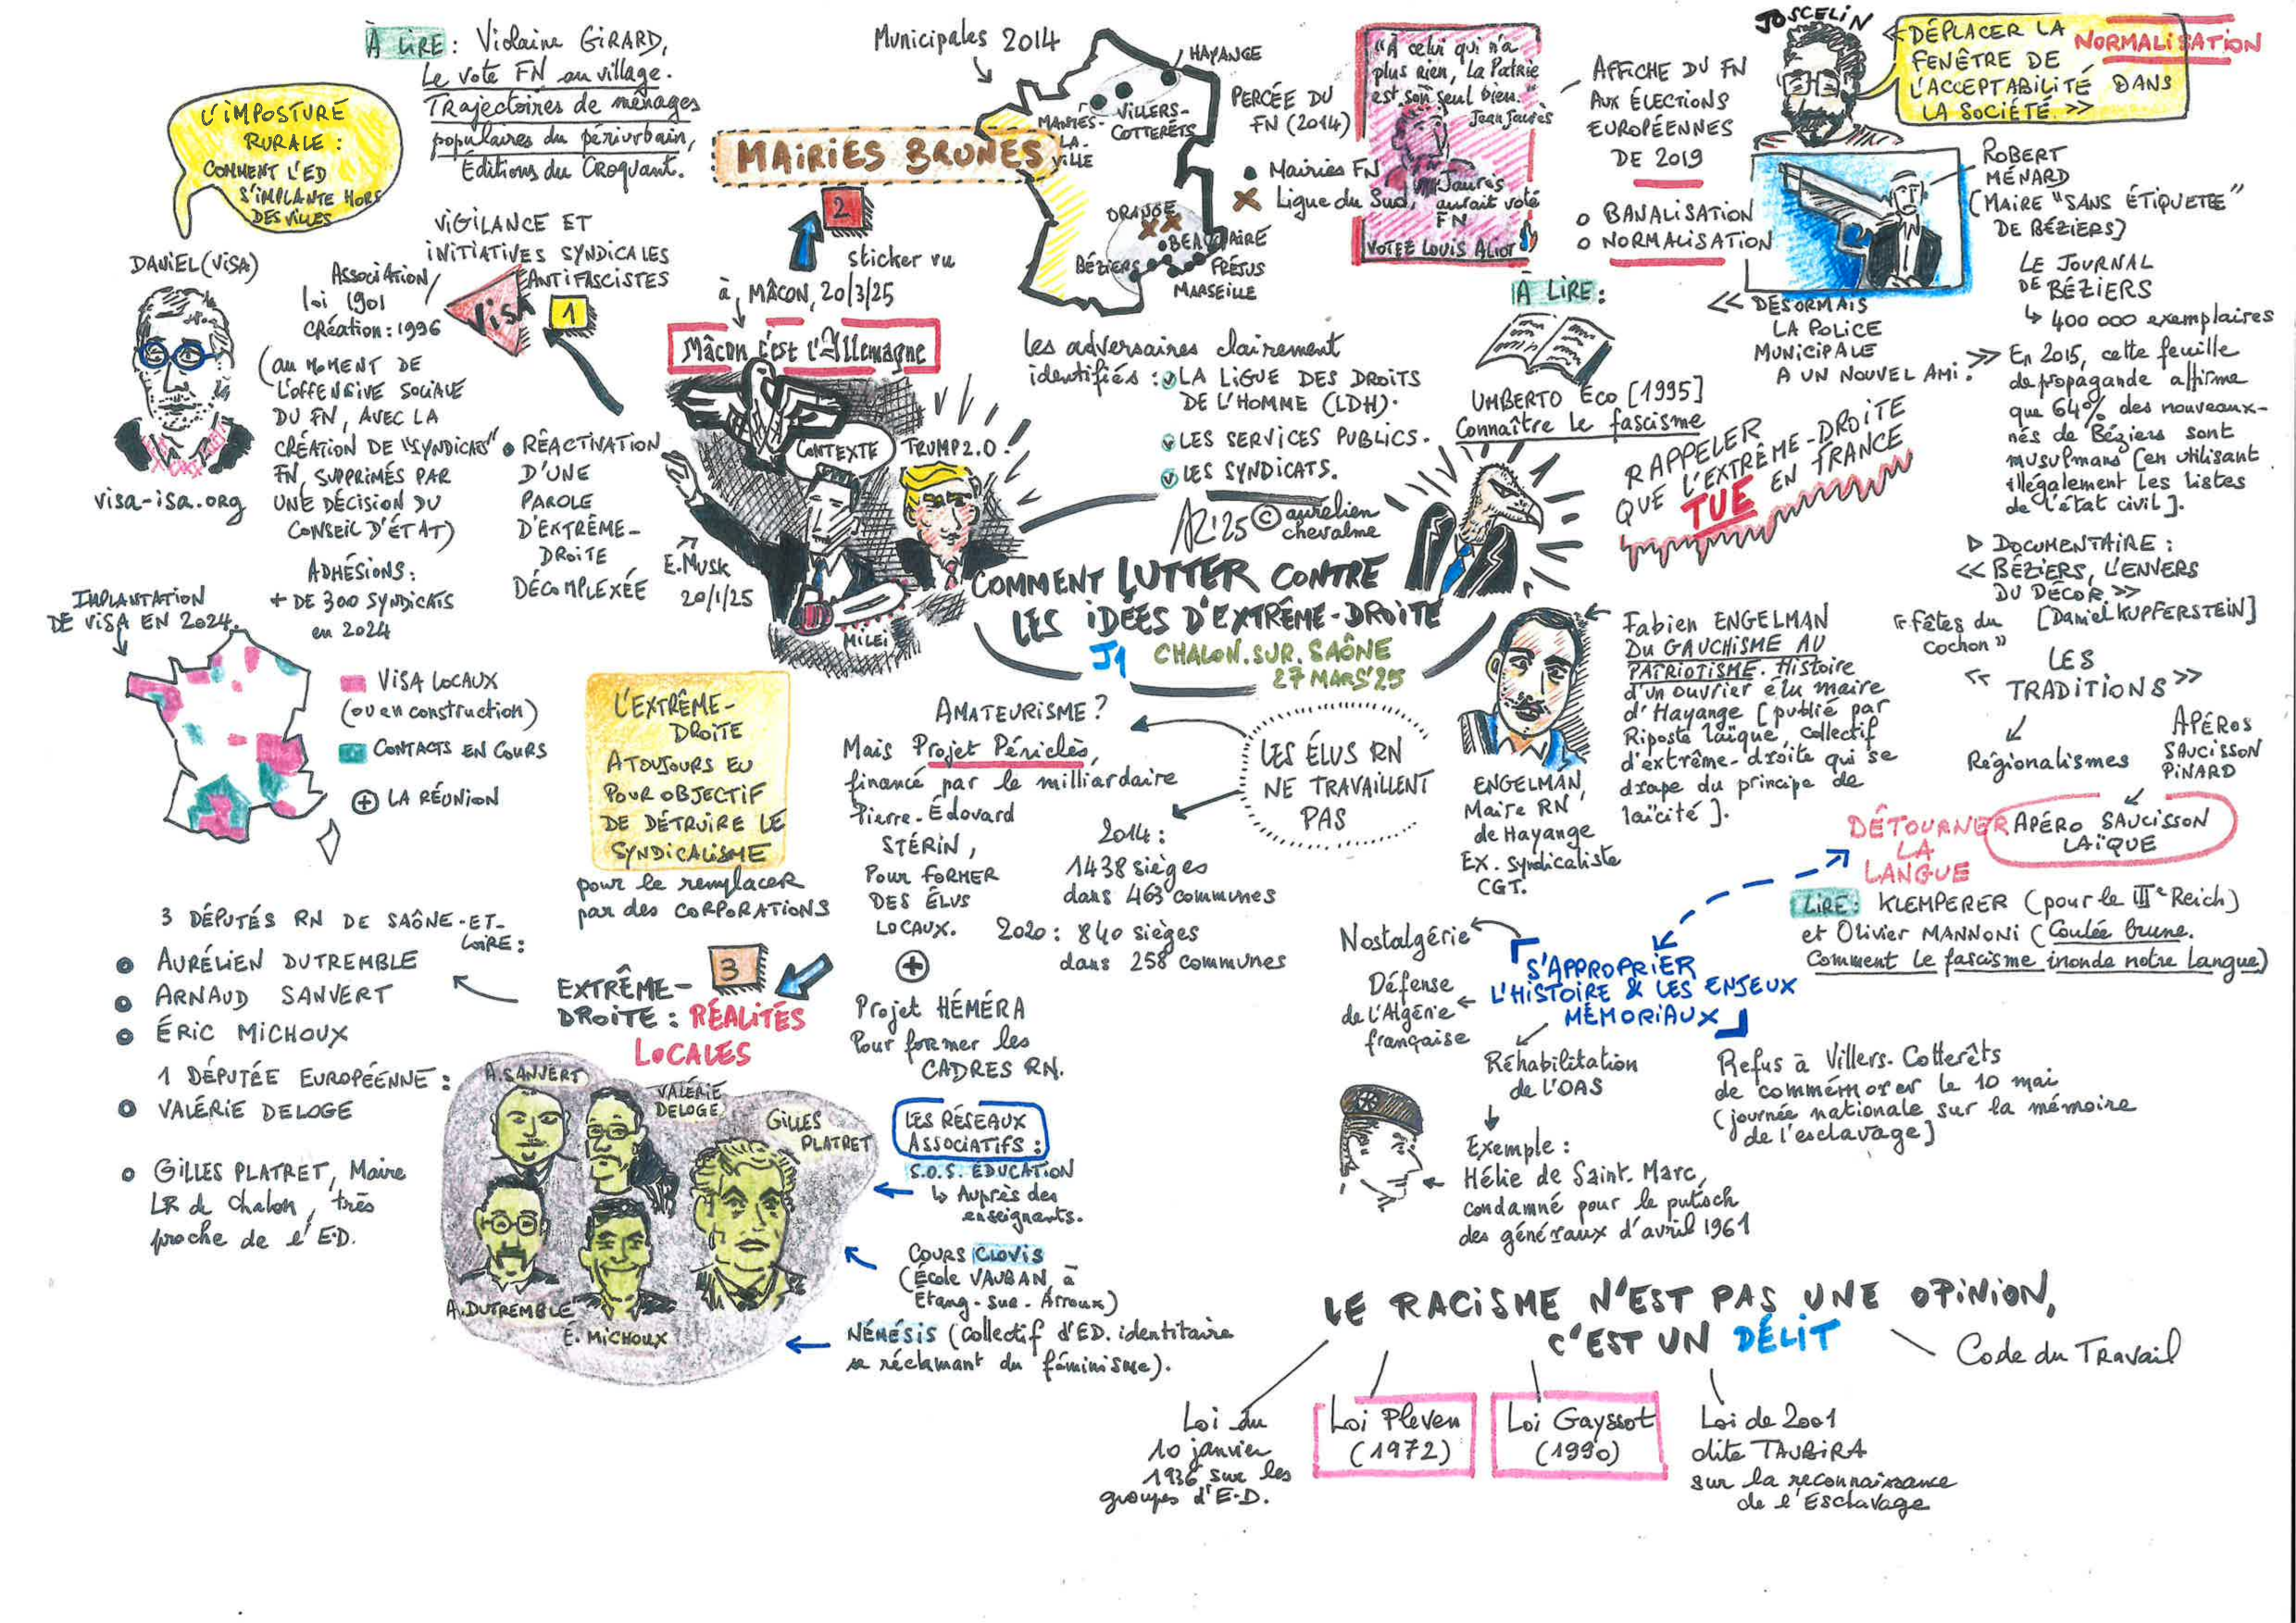 À LIRE : Violaine GIRARD,
Le vote FN au village.
Trajectoires de ménages
populaires du périurbain,
Éditions du Croquant.
L'IMPOSTURE
RURALE :
COMMENT L'ED
S'IMPLANTE HORS
DES VILLES
DANIEL (VISA)
visa-isa.org
VIGILANCE ET
INITIATIVES SYNDICALES
ANTIFASCISTES
VISA
1
Association
loi 1901
Création : 1996
(au MOMENT DE
L'OFFENSIVE SOCIALE
DU FN, AVEC LA
CRÉATION DE "SYNDICATS"
FN, SUPPRIMÉS PAR
UNE DÉCISION DU
CONSEIL D'ÉTAT)
ADHÉSIONS :
+ DE 300 SYNDICATS
en 2024
IMPLANTATION
DE VISA EN 2024
VISA LOCAUX
(ou en construction)
CONTACTS EN COURS
+ LA RÉUNION
RÉACTIVATION
D'UNE
PAROLE
D'EXTRÊME-
DROITE
DÉCOMPLEXÉE
MAIRIES BRUNES
2
sticker vu
à MÂCON, 20/3/25
Mâcon c'est l'Allemagne
CONTEXTE
TRUMP 2.0
E. MUSK
20/1/25
MILEI
Municipales 2014
HAYANGE
MANTES-
LA-
VILLE
VILLERS-
COTTERÊTS
ORANGE
BEAUCAIRE
BÉZIERS
FRÉJUS
MARSEILLE
PERCÉE DU
FN (2014)
Mairies FN
Ligue du Sud
les adversaires clairement
identifiés : LA LIGUE DES DROITS
DE L'HOMME (LDH).
LES SERVICES PUBLICS.
LES SYNDICATS.
AR'25 © aurélien
chevalme
COMMENT LUTTER CONTRE
LES IDÉES D'EXTRÊME-DROITE
J1 CHALON.SUR.SAÔNE
27 MARS'25
"À celui qui n'a
plus rien, la Patrie
est son seul bien."
Jean Jaurès
Jaurès
aurait voté
FN
VOTEZ LOUIS ALIOT
AFFICHE DU FN
AUX ÉLECTIONS
EUROPÉENNES
DE 2019
BANALISATION
NORMALISATION
JOSCELIN
« DÉPLACER LA
FENÊTRE DE
L'ACCEPTABILITÉ DANS
LA SOCIÉTÉ. »
NORMALISATION
ROBERT
MÉNARD
(MAIRE "SANS ÉTIQUETTE"
DE BÉZIERS)
« DÉSORMAIS
LA POLICE
MUNICIPALE
A UN NOUVEL AMI. »
LE JOURNAL
DE BÉZIERS
↳ 400 000 exemplaires
En 2015, cette feuille
de propagande affirme
que 64% des nouveaux-
nés de Béziers sont
musulmans [en utilisant
illégalement les listes
de l'état civil].
▷ DOCUMENTAIRE :
« BÉZIERS, L'ENVERS
DU DÉCOR »
[Daniel KUPFERSTEIN]
À LIRE :
UMBERTO ECO [1995]
Connaître le fascisme
RAPPELER
QUE L'EXTRÊME-DROITE
TUE EN FRANCE
Fabien ENGELMAN
DU GAUCHISME AU
PATRIOTISME. Histoire
d'un ouvrier élu maire
d'Hayange [publié par
Riposte laïque, collectif
d'extrême-droite qui se
drape du principe de
laïcité].
ENGELMAN,
Maire RN
de Hayange
Ex. syndicaliste
CGT.
"fêtes du
cochon"
LES
« TRADITIONS »
Régionalismes
APÉROS
SAUCISSON
PINARD
APÉRO SAUCISSON
LAÏQUE
DÉTOURNER
LA
LANGUE
LIRE : KLEMPERER (pour le IIIe Reich)
et Olivier MANNONI (Coulée brune.
Comment le fascisme inonde notre langue)
S'APPROPRIER
L'HISTOIRE & LES ENJEUX
MÉMORIAUX
Nostalgérie
Défense
de l'Algérie
française
Réhabilitation
de l'OAS
Exemple :
Hélie de Saint-Marc,
condamné pour le putsch
des généraux d'avril 1961
Refus à Villers-Cotterêts
de commémorer le 10 mai
(journée nationale sur la mémoire
de l'esclavage]
L'EXTRÊME-
DROITE
A TOUJOURS EU
POUR OBJECTIF
DE DÉTRUIRE LE
SYNDICALISME
pour le remplacer
par des CORPORATIONS
LES ÉLUS RN
NE TRAVAILLENT
PAS
AMATEURISME ?
Mais Projet Périclès,
financé par le milliardaire
Pierre-Édouard
STÉRIN,
POUR FORMER
DES ÉLUS
LOCAUX.
+
Projet HÉMÉRA
Pour former les
CADRES RN.
2014 :
1438 sièges
dans 463 communes
2020 : 840 sièges
dans 258 communes
3
EXTRÊME-
DROITE : RÉALITÉS
LOCALES
3 DÉPUTÉS RN DE SAÔNE-ET-
LOIRE :
AURÉLIEN DUTREMBLE
ARNAUD SANVERT
ÉRIC MICHOUX
1 DÉPUTÉE EUROPÉENNE :
VALÉRIE DELOGE
GILLES PLATRET, Maire
LR de Chalon, très
proche de l'E.D.
A. SANVERT
VALÉRIE
DELOGE
GILLES
PLATRET
A. DUTREMBLE
É. MICHOUX
LES RÉSEAUX
ASSOCIATIFS :
S.O.S. ÉDUCATION
↳ Auprès des
enseignants.
COURS CLOVIS
(École VAUBAN, à
Étang-sur-Arroux)
NÉMÉSIS (collectif d'ED. identitaire
se réclamant du féminisme).
LE RACISME N'EST PAS UNE OPINION,
C'EST UN DÉLIT
Code du Travail
Loi du
10 janvier
1936 sur les
groupes d'E.D.
Loi Pleven
(1972)
Loi Gayssot
(1990)
Loi de 2001
dite TAUBIRA
sur la reconnaissance
de l'Esclavage